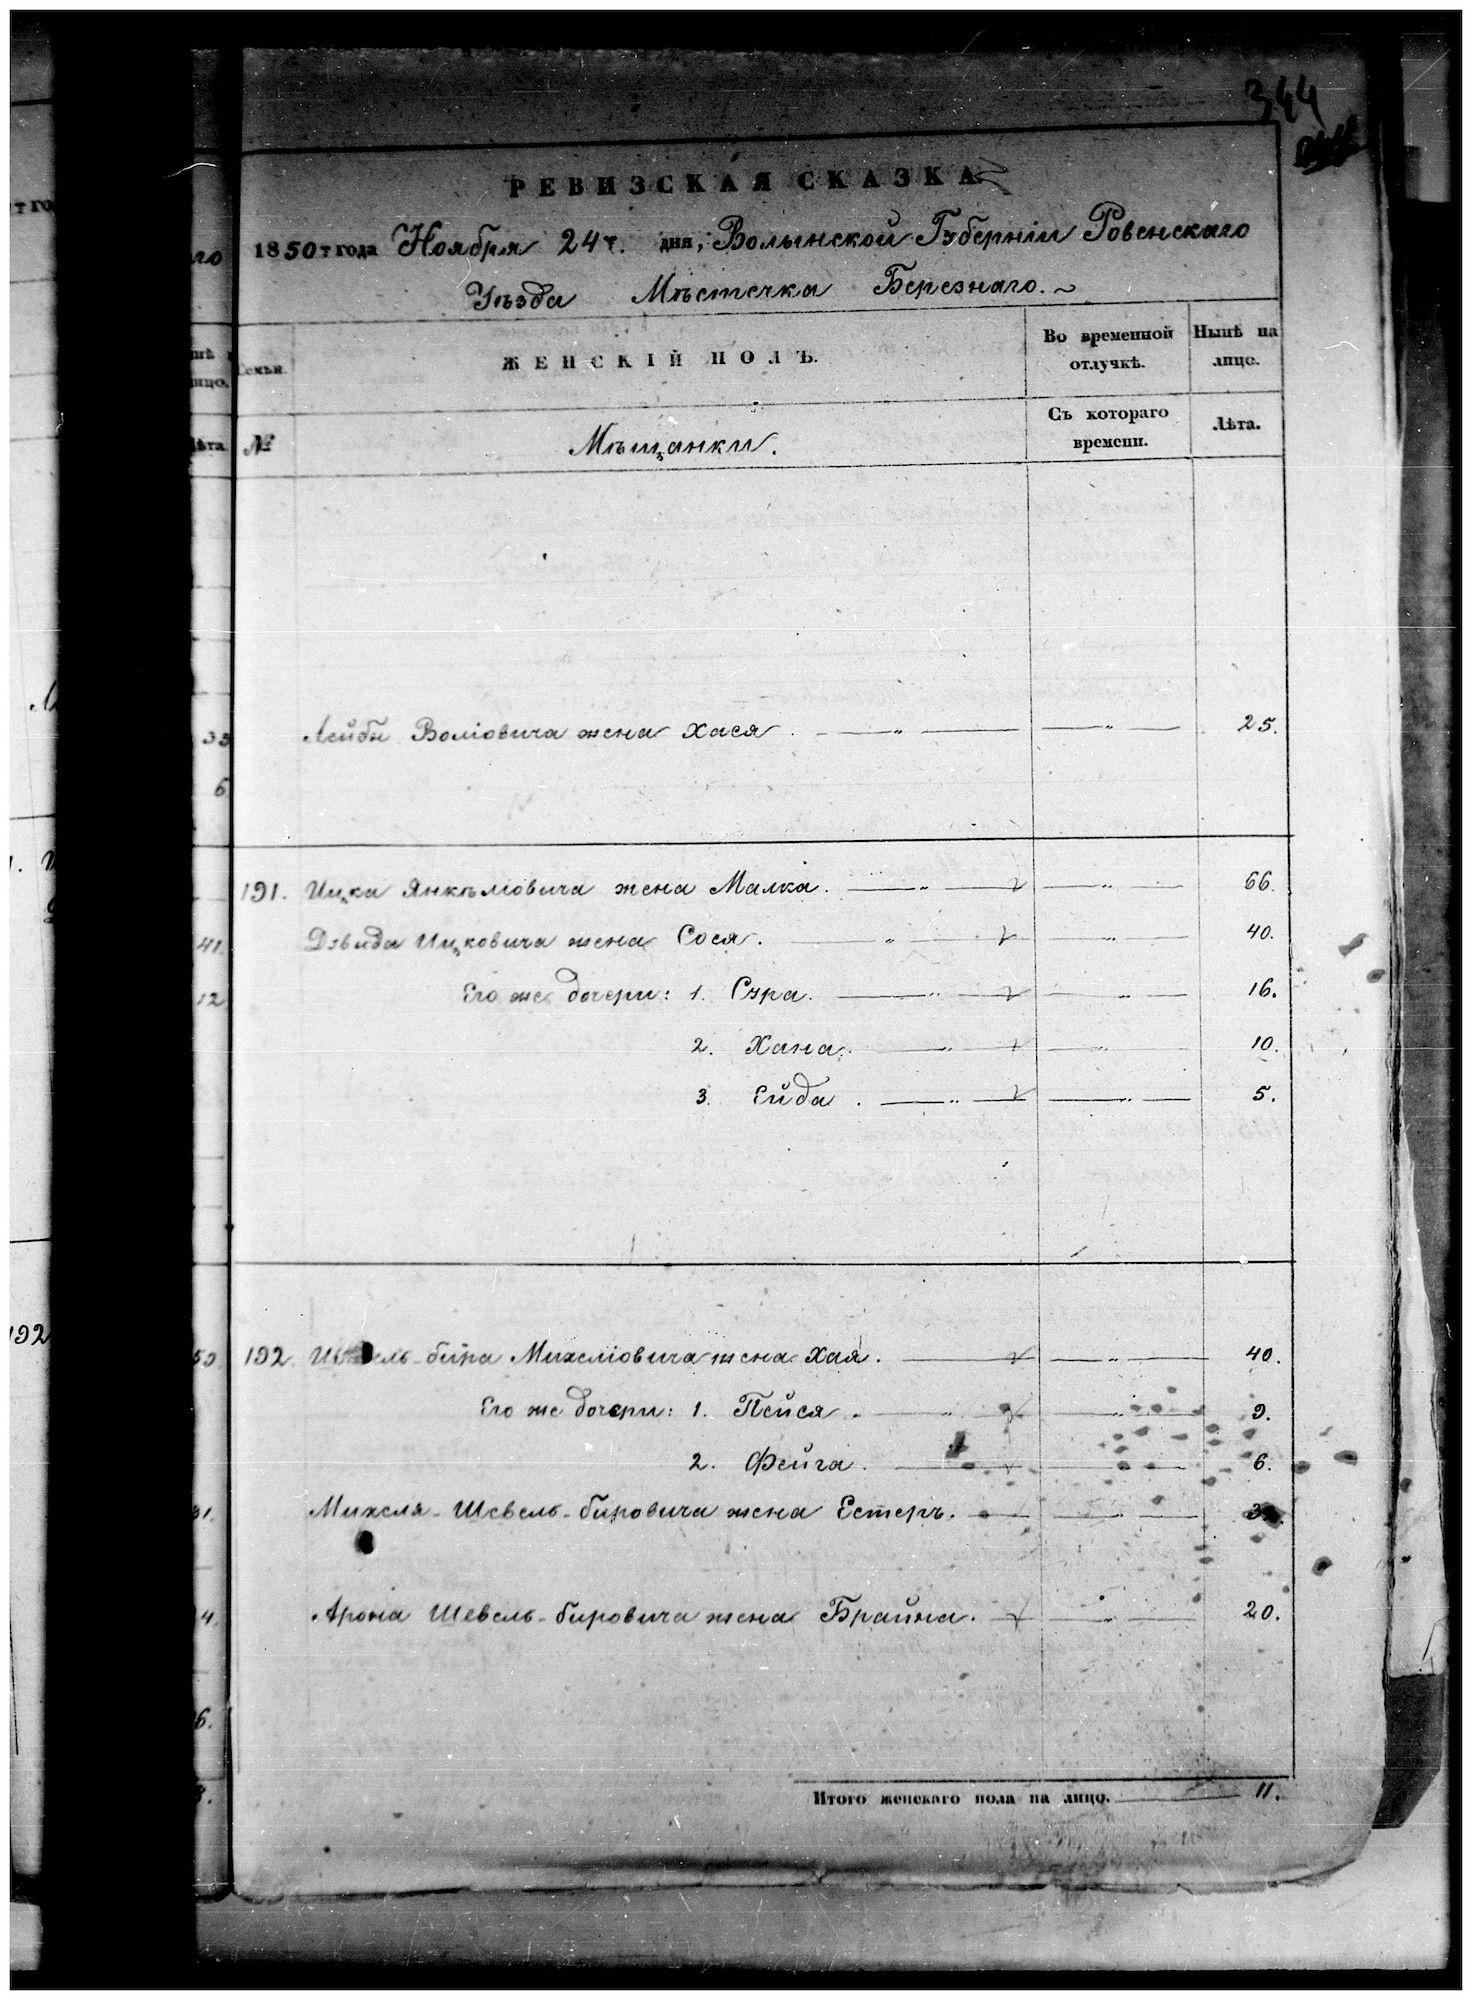 344
РЕВИЗСКАЯ СКАЗКА
1850 т года Ноября 24 т. дня, Волынской Губерніи Ровенскаго
Уѣзда Мѣстечка Березнаго.
Семьи.
ЖЕНСКІЙ ПОЛЪ.
Во временной отлучкѣ.
Нынѣ на лицо.
№
Мѣщанки.
Съ котораго времени.
Лѣта.
Лейбы Воліовича жена Хася. 25.
191. Ицка Янкѣліовича жена Малка. 66.
Давида Ицковича жена Сося. 40.
Его же дочери: 1. Сура. 16.
2. Хана. 10.
3. Ейда. 5.
192. бира Михеліовича жена Хая. 40.
Его же дочери: 1. Пейся. 9.
2. Фейга. 6.
Михеля Шевель-бировича жена Естеръ.
Арона Шевель-бировича жена Брайна. 20.
Итого женскаго пола на лицо. 11.